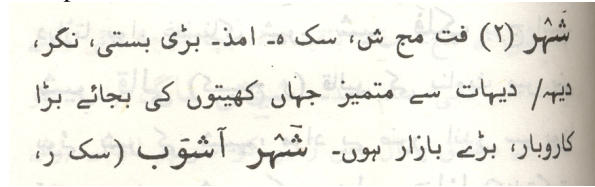 شَہْر (۲) فت مج ش، سک ہ۔ امذ۔ بڑی بستی، نگر،
دیہہ/ دیہات سے متمیز جہاں کھیتوں کی بجائے بڑا
کاروبار، بڑے بازار ہوں۔ شَہْر آشوب (سک ر،